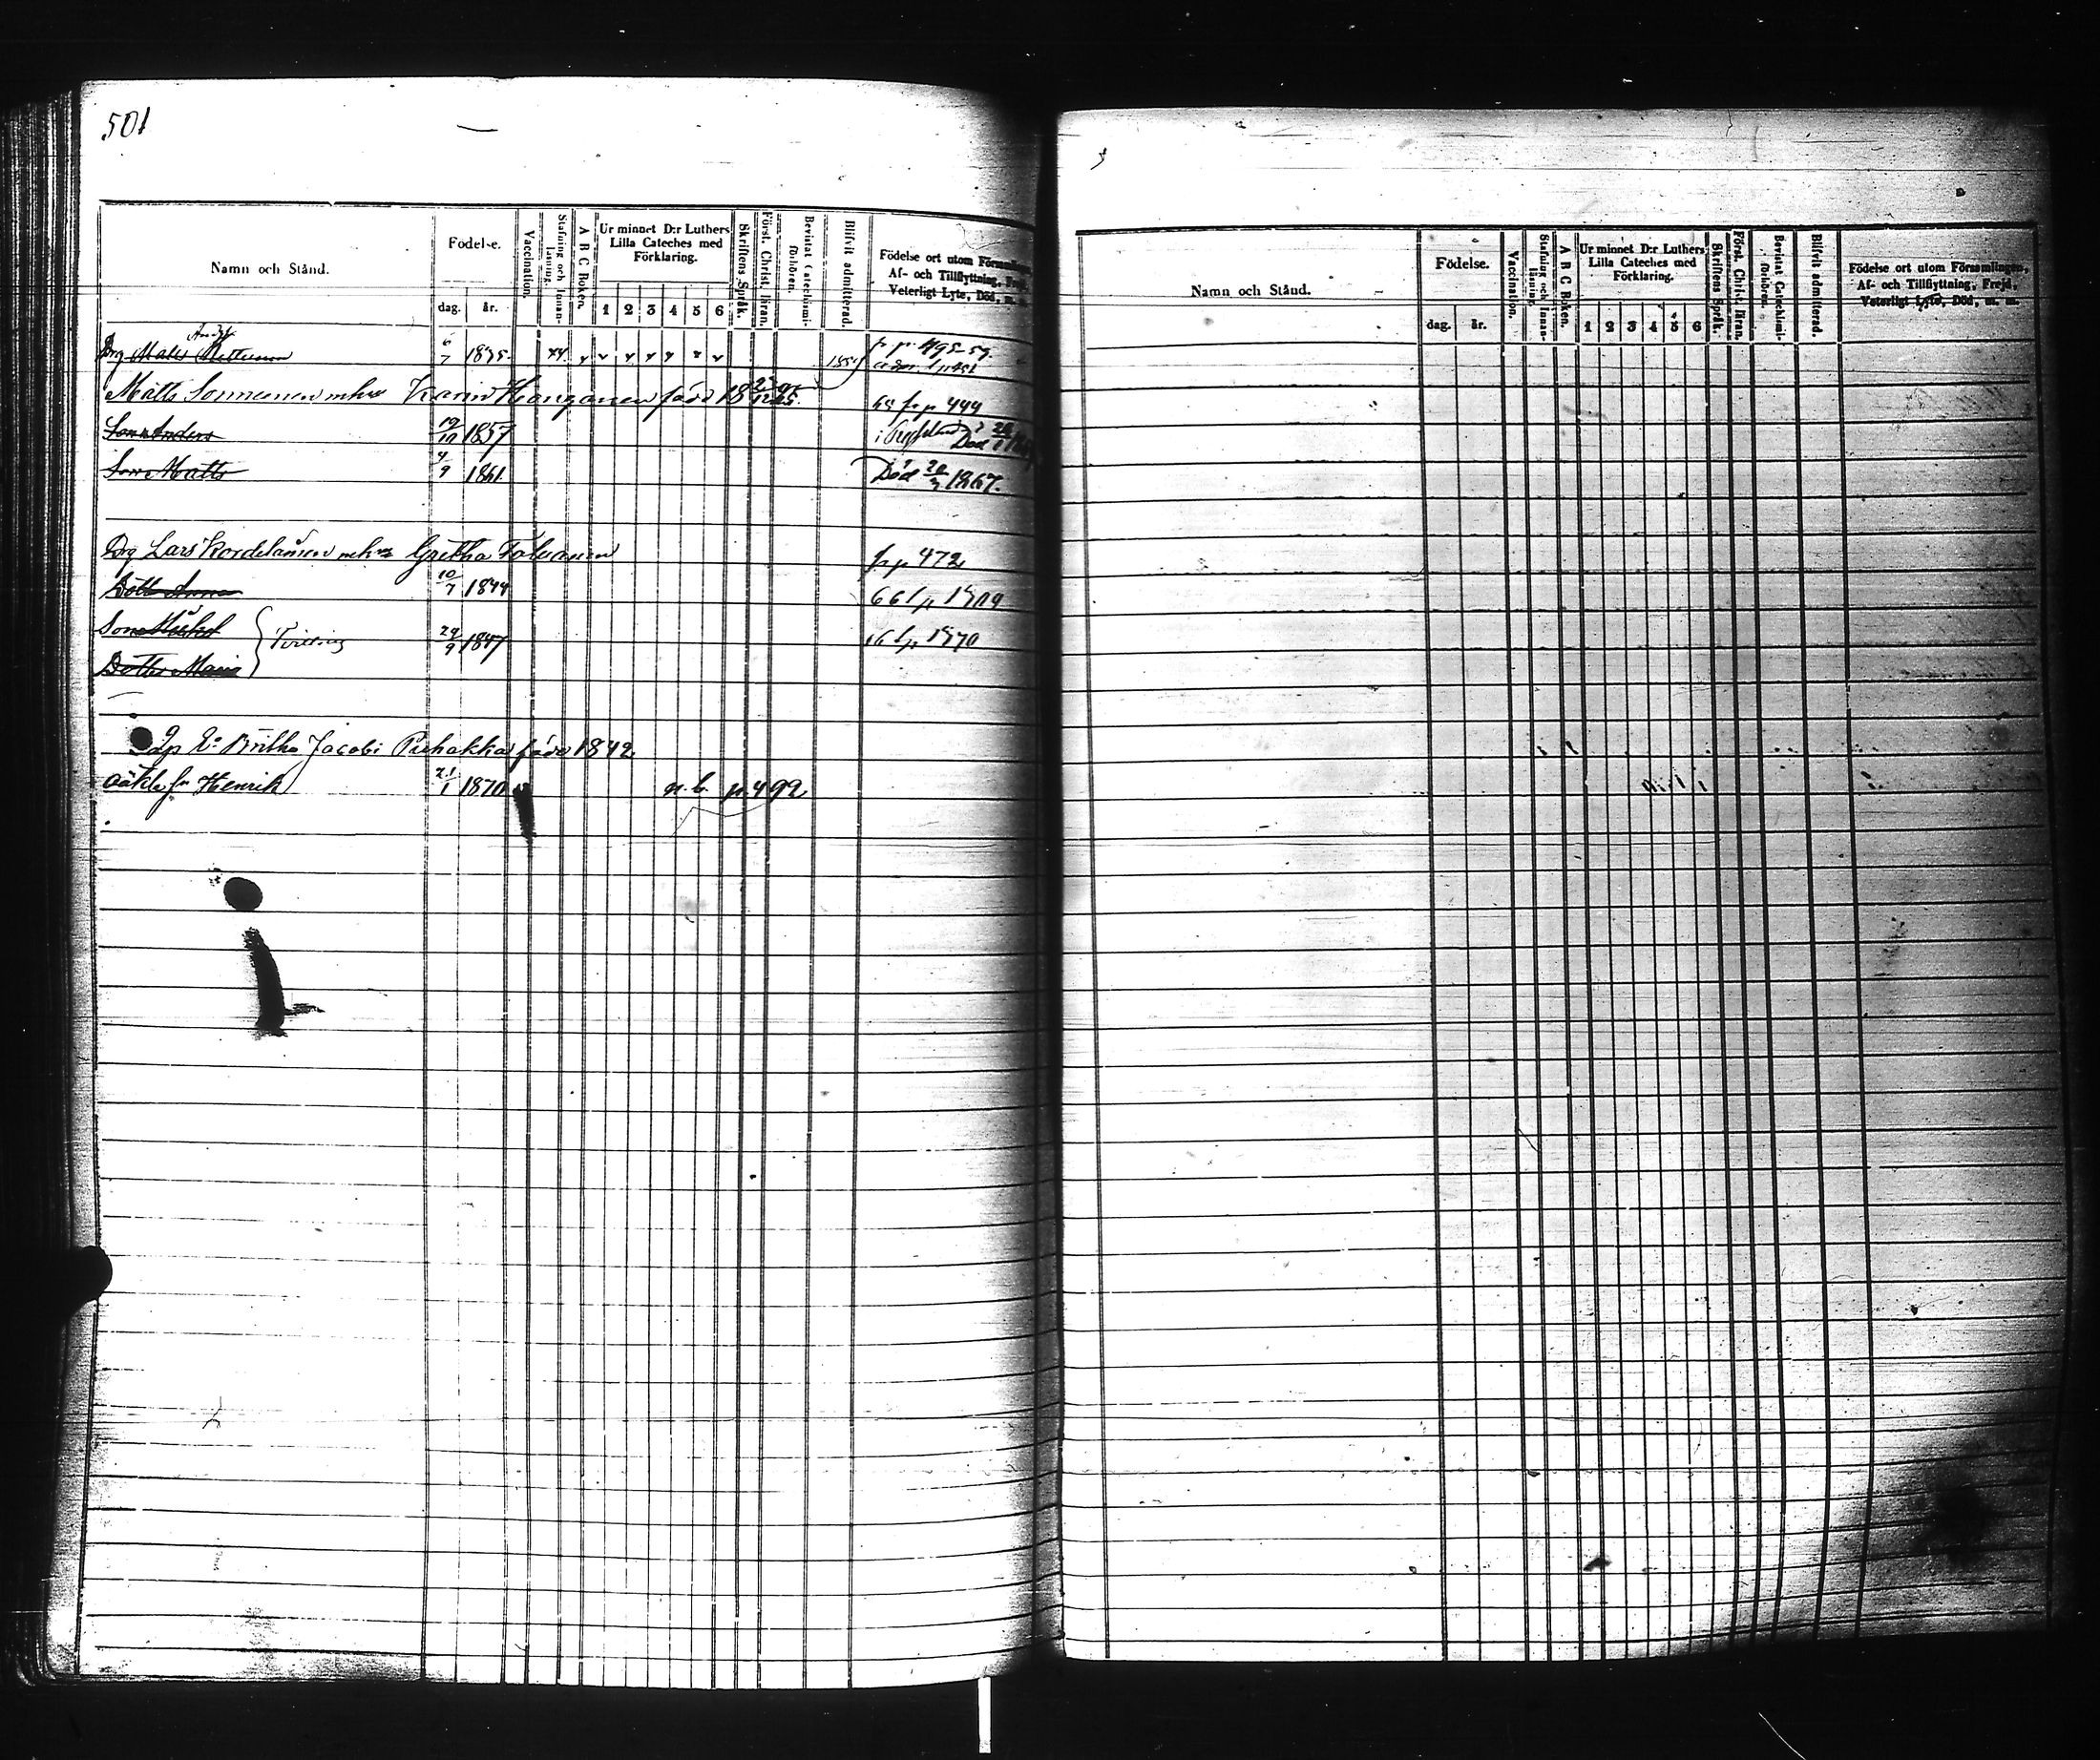 501
Namn och Stånd.
Födelse.
dag. år.
Vaccination.
Stafning och Innanläsning.
A B C Boken.
Ur minnet D:r Luthers Lilla Cateches med Förklaring.
1 2 3 4 5 6
Skriftens Språk.
Först. Christ. läran.
Bevistat Catechismiförhören.
Blifvit admitterad.
Födelse ort utom Församlingen,
Af- och Tillflyttning, Frejd,
Veterligt Lyte, Död, m. m.
Drg Matts 6/7 1835
Matts Sonninen m hu Karin född 18 fr p 444
Son Anders 19/10 1857 Död
Son Matts 4/9 1861 Död 1867.
Drg Lars m hu Gretha fr p 472
Dottr Anna 10/7 1844 66
Son Michel Tvilling 29/9 1847
Dotter Maria
Britha Jacobi Puhakka född 1842
oäkta sn Henrik 21/1 1870 n. b. p. 492
Namn och Stånd.
Födelse.
dag. år.
Vaccination.
Stafning och Innanläsning.
A B C Boken.
Ur minnet D:r Luthers Lilla Cateches med Förklaring.
1 2 3 4 5 6
Skriftens Språk.
Först. Christ. läran.
Bevistat Catechismiförhören.
Blifvit admitterad.
Födelse ort utom Församlingen,
Af- och Tillflyttning, Frejd,
Veterligt Lyte, Död, m. m.